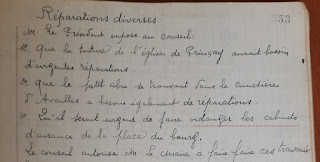 Réparations diverses
53
M. Le Président expose au conseil:
1º que la toiture de l'église de Prinçay aurait besoin
d'urgentes réparations.
2º que le petit abri se trouvant dans le cimetière
d'Availles a besoin également de réparations.
3º Qu'il serait urgent de faire vidanger les cabinets
d'aisance de la place du bourg.
Le conseil autorise M. le Maire à faire faire ces travaux